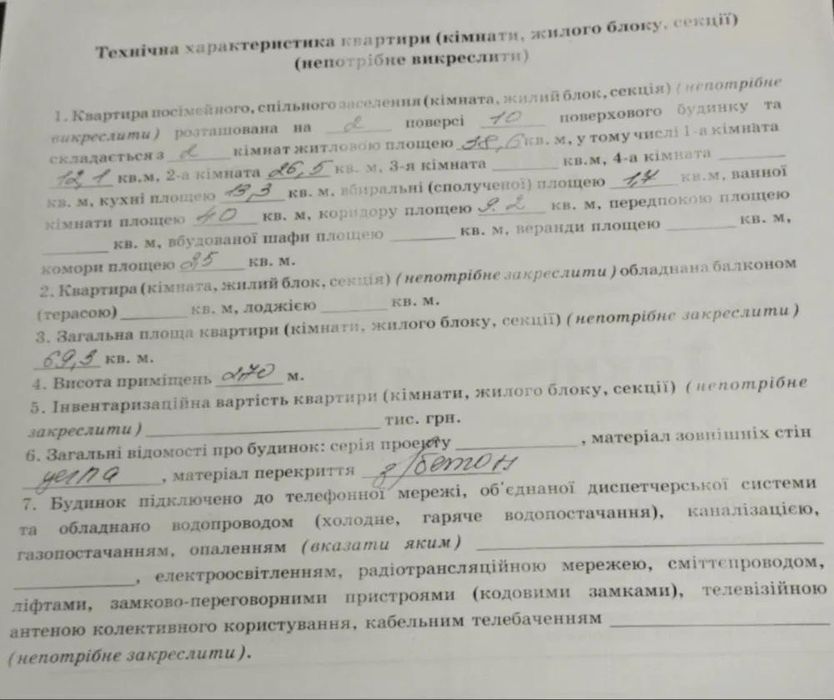 Технічна характеристика квартири (кімнати, жилого блоку, секції)
(непотрібне викреслити)
1. Квартира посімейного, спільного заселення (кімната, жилий блок, секція) (непотрібне
викреслити) розташована на 2 поверсі 10 поверхового будинку та
складається з 2 кімнат житловою площею 38,6 кв. м, у тому числі 1-а кімната
12,1 кв.м, 2-а кімната 26,5 кв. м, 3-я кімната ______ кв.м, 4-а кімната ______
кв. м, кухні площею 13,3 кв. м, вбиральні (сполученої) площею 1,4 кв.м, ванної
кімнати площею 4.0 кв. м, коридору площею 9.2 кв. м, передпокою площею
______ кв. м, вбудованої шафи площею ______ кв. м, веранди площею ______ кв. м,
комори площею 2,5 кв. м.
2. Квартира (кімната, жилий блок, секція) (непотрібне закреслити) обладнана балконом
(терасою) ______ кв. м, лоджією ______ кв. м.
3. Загальна площа квартири (кімнати, жилого блоку, секції) (непотрібне закреслити)
69,3 кв. м.
4. Висота приміщень 2,70 м.
5. Інвентаризаційна вартість квартири (кімнати, жилого блоку, секції) (непотрібне
закреслити) ______ тис. грн.
6. Загальні відомості про будинок: серія проекту ______, матеріал зовнішніх стін
цегла, матеріал перекриття з/бетон
7. Будинок підключено до телефонної мережі, об'єднаної диспетчерської системи
та обладнано водопроводом (холодне, гаряче водопостачання), каналізацією,
газопостачанням, опаленням (вказати яким) ______
______, електроосвітленням, радіотрансляційною мережею, сміттєпроводом,
ліфтами, замково-переговорними пристроями (кодовими замками), телевізійною
антеною колективного користування, кабельним телебаченням ______
(непотрібне закреслити).